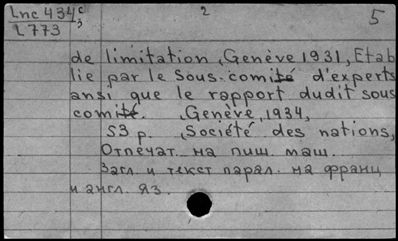 Lnc 434 c/3 2 5
L773
de limitation, Genève 1931, Etab
lie par le Sous-comité d'experts
ansi que le rapport dudit sous
comité. Genève, 1934,
53 p. Société des nations,
Отпечат. на пиш. маш.
Загл. и текст парал. на франц
и англ. яз.